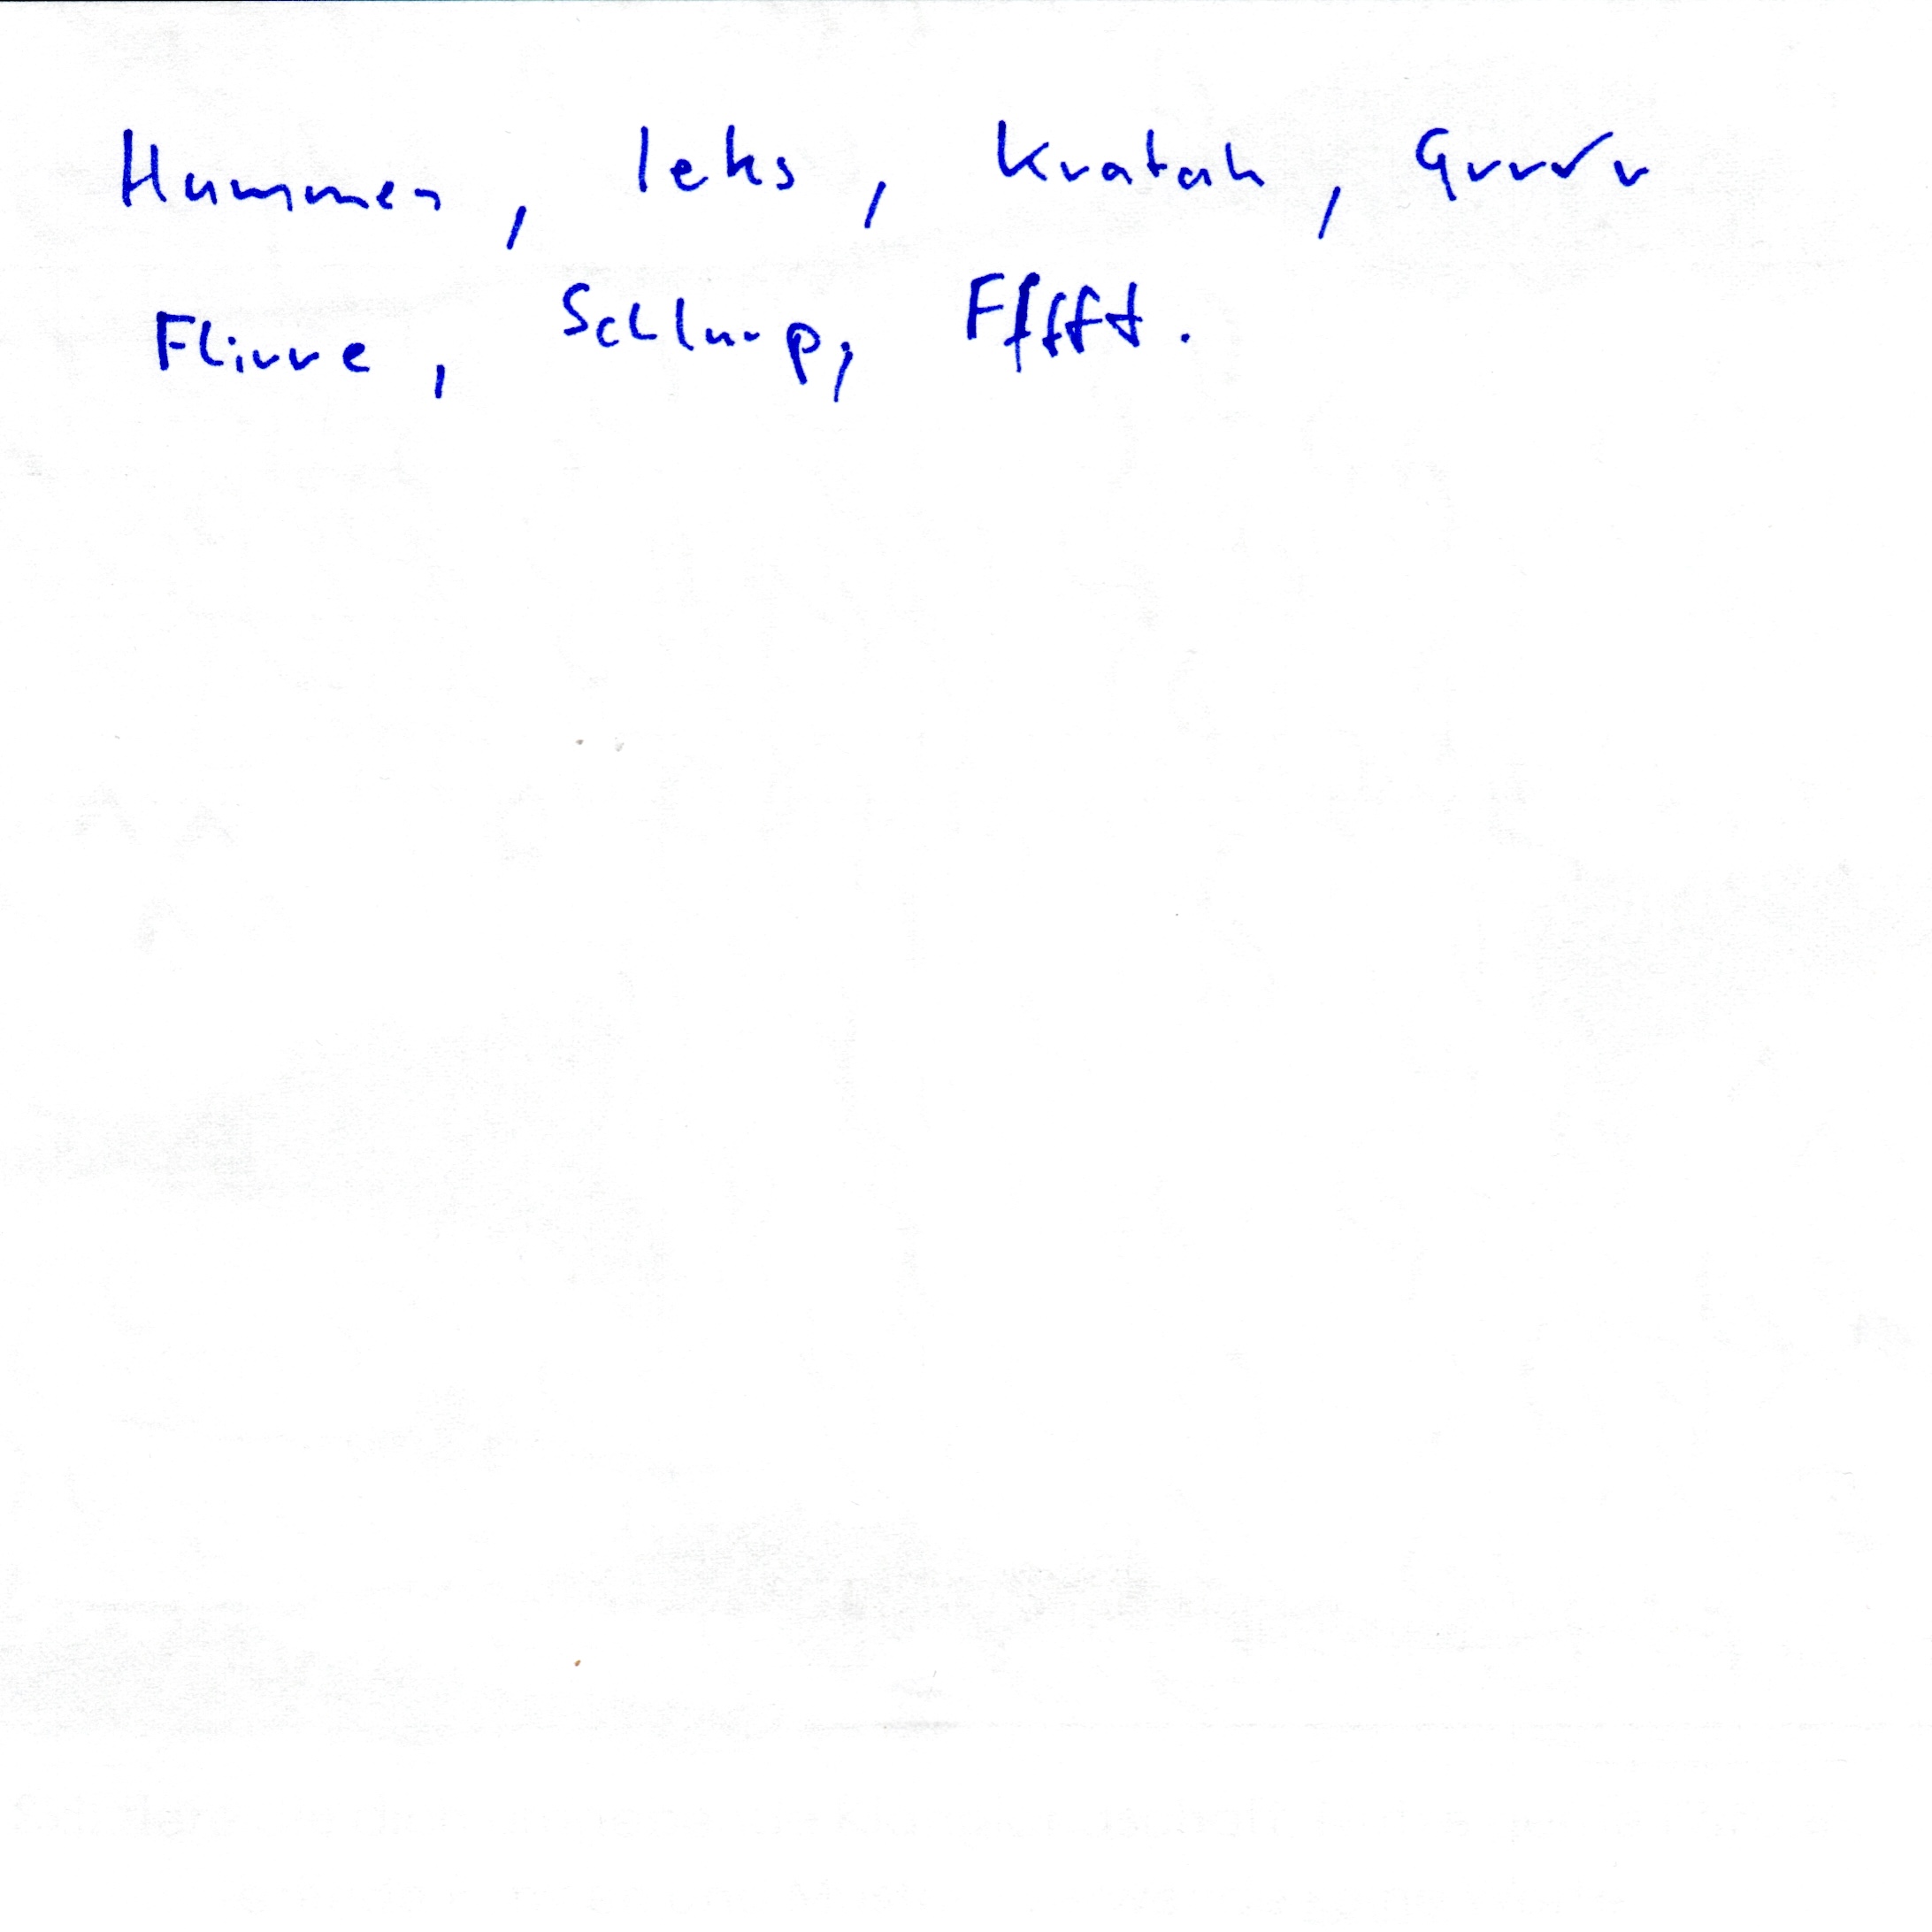 Hummen, leks, kratah, Grrrr
Flirre, Schlurp, Fffft.